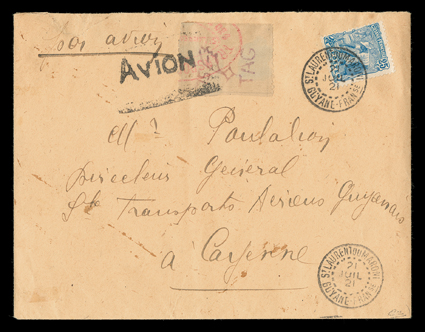 par avion
AVION
TAG
ST LAURENT DU MARONI
21
JUIL
21
GUYANE-FRANSE
25
Mr Poulahon
Directeur General
Sté Transports Aériens Guyanais
à Cayenne
ST LAURENT DU MARONI
21
JUIL
21
GUYANE-FRANSE